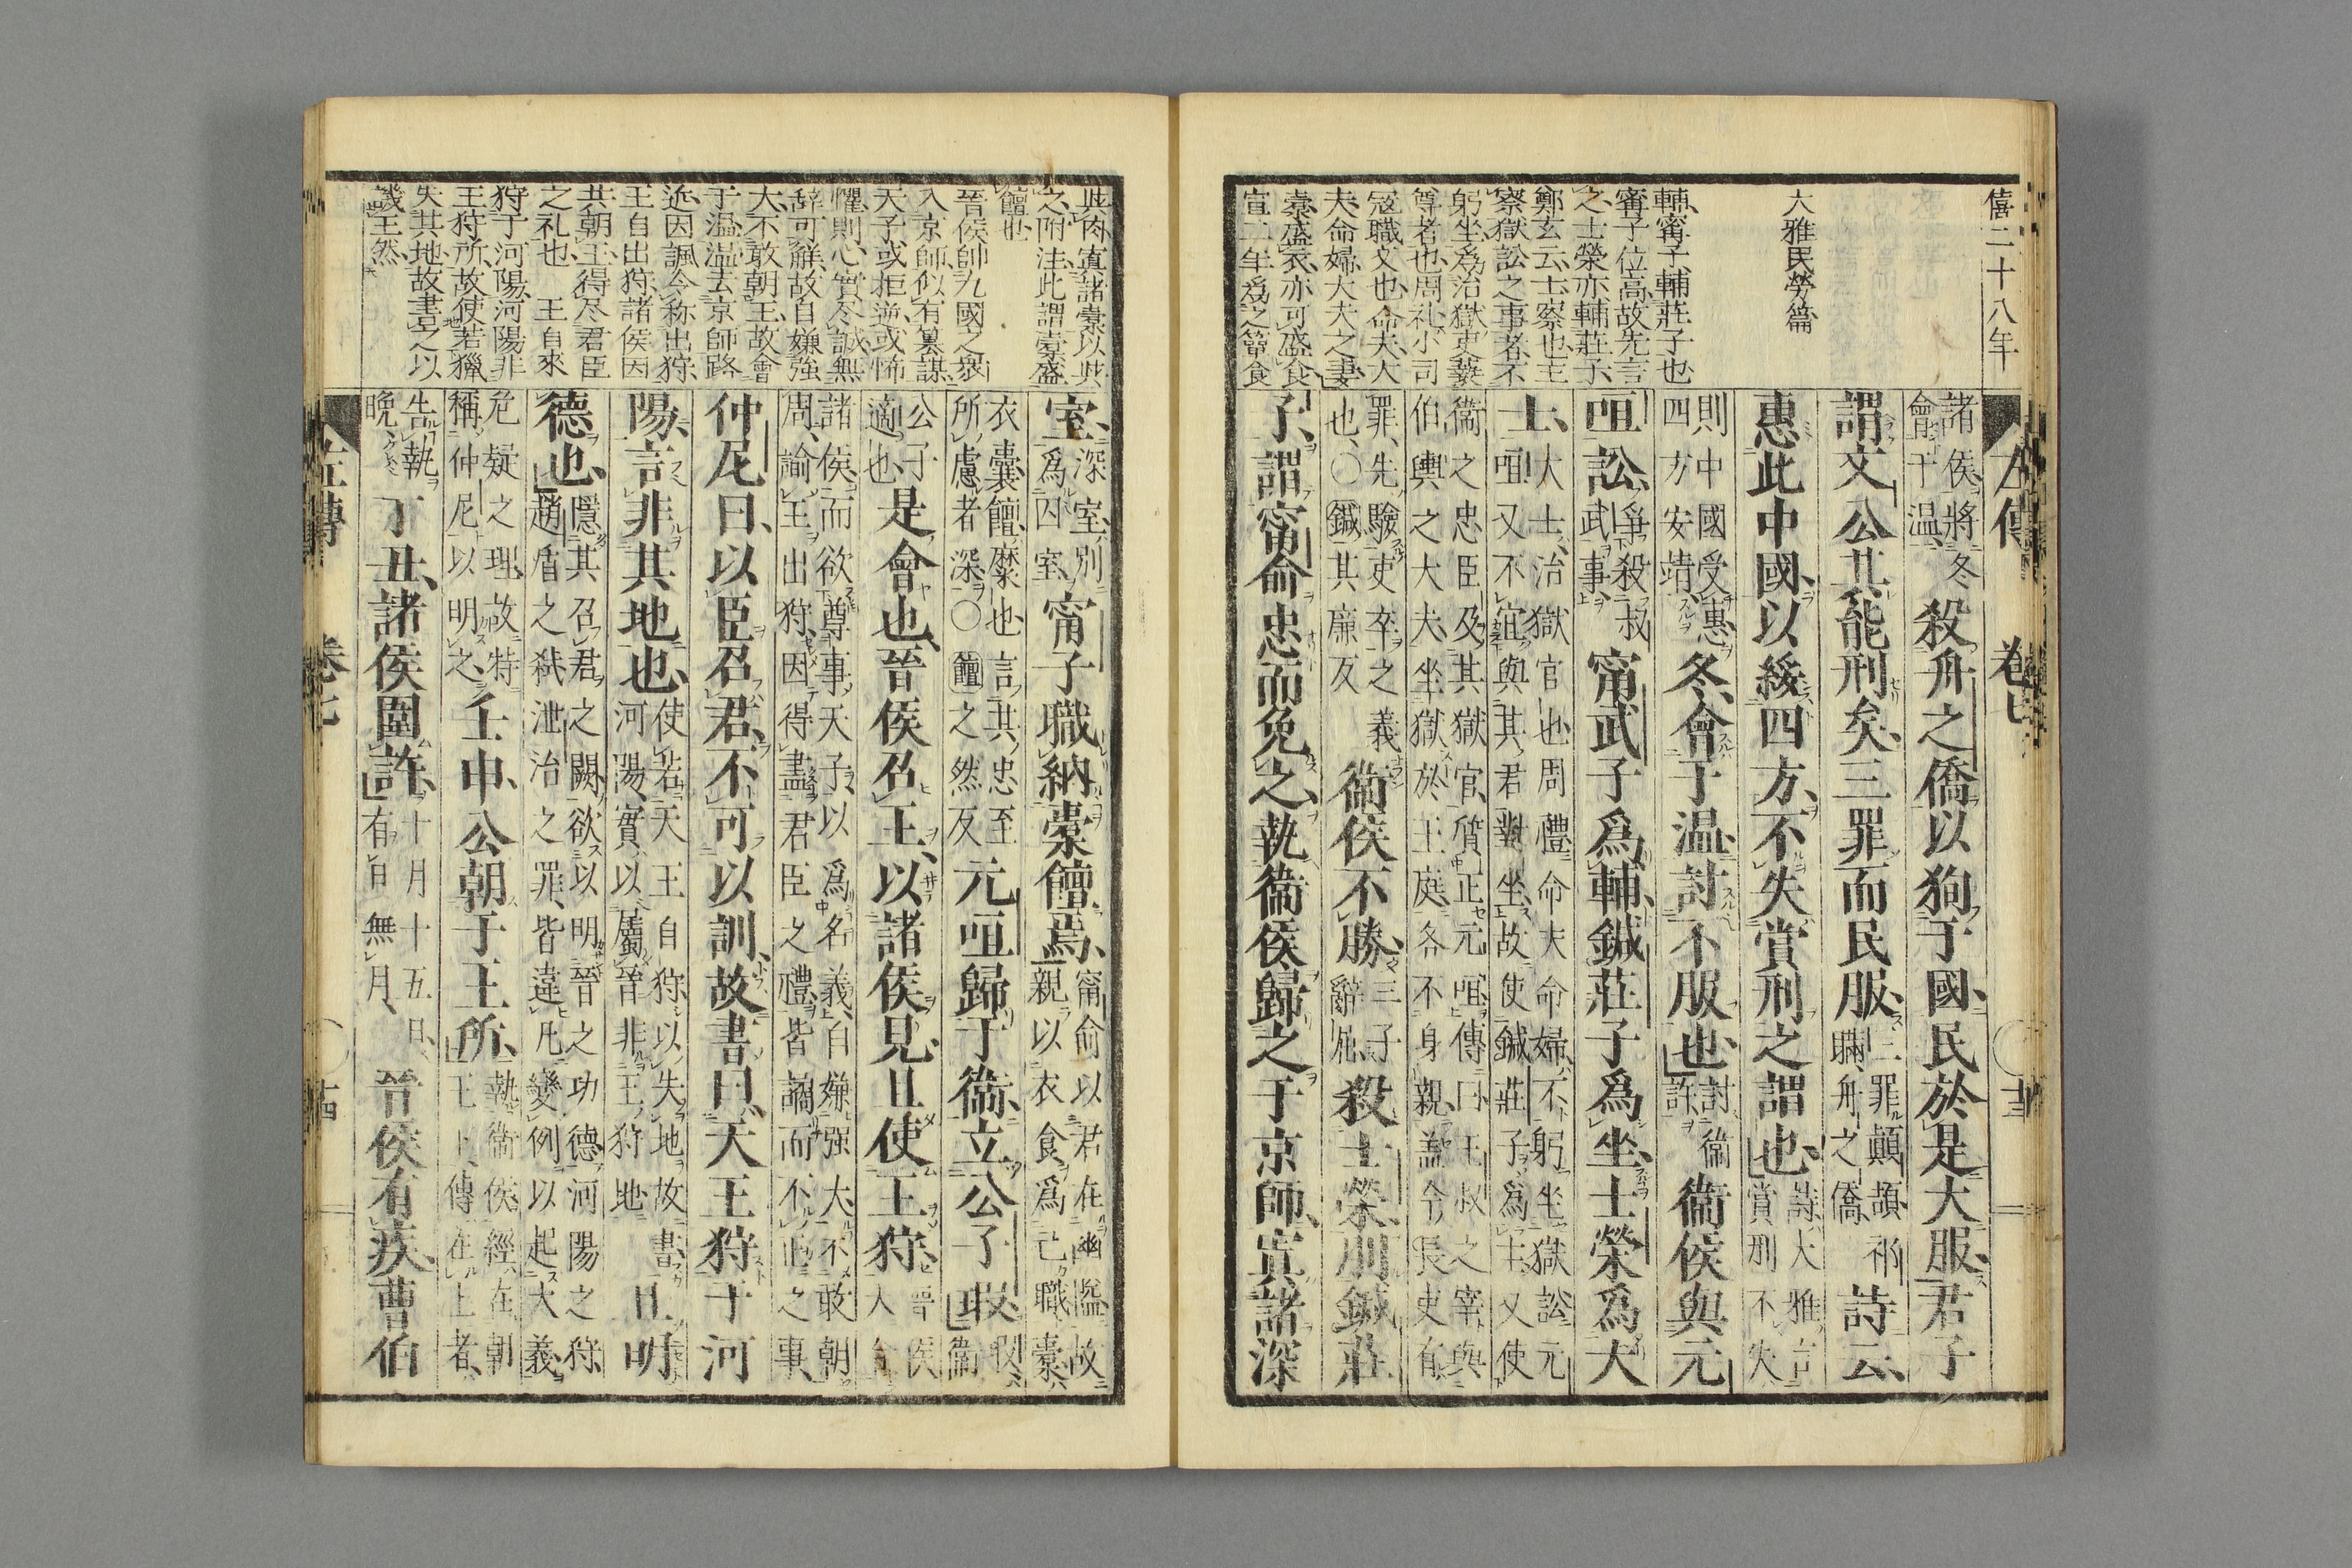 僖二十八年
大雅民勞篇
輔甯子輔莊子也
甯子位高故先言
之士榮亦輔莊子
鄭玄云士察也主
察獄訟之事者不
躬坐爲治獄吏褻
尊者也周礼小司
寇職文也命夫大
夫命婦大夫之妻
橐盛衣亦可盛食
宣二年爲之簞食
左傳 卷七
諸侯將冬
會于温
殺舟之僑以狥于國民於是大服君子
謂文公其能刑矣三罪而民服
三罪顚頡祁
瞞舟之僑
詩云
惠此中國以綏四方不失賞刑之謂也
詩大雅言
賞刑不失
則中國受惠
四方安靖
冬會于温討不服也
討衞
許
衞侯與元
咺訟
爭殺叔
武事
甯武子爲輔鍼莊子爲坐士榮爲大
士
大士治獄官也周禮命夫命婦不躬坐獄訟元
咺又不宜與其君對坐故使鍼莊子爲主又使
衞之忠臣及其獄官質正元咺傳曰王叔之宰與
伯輿之大夫坐獄於王庭各不身親蓋今長吏有
罪先驗吏卒之義
也〇鍼其廉反
衞侯不勝
三子
辭屈
殺士榮刖鍼莊
子謂甯俞忠而免之執衞侯歸之于京師寘諸深
此肉寘諸橐以與
之附注此謂橐盛
饘也
晉侯師九國之衆
入京師似有纂謀
天子或拒逆或怖
懼則心實尽誠無
辞可解故自嫌強
大不敢朝王故會
于温温去京師路
近因諷令称出狩
王自出狩諸侯因
共朝王得尽君臣
之礼也 王自來
狩于河陽河陽非
王狩所故使若獵
失其地故書之以
譏王然
室
深室別
爲囚室
甯子職納橐饘焉
甯俞以君在幽隘故
親以衣食爲己職橐
衣囊饘糜也言其忠至
所慮者深〇饘之然反
元咺歸于衞立公子瑕
瑕衞
公子
適也
是會也晉侯召王以諸侯見且使王狩
晉侯
大合
諸侯而欲尊事天子以爲名義自嫌强大不敢朝
周諭王出狩因得盡君臣之禮皆譎而不正之事
仲尼曰以臣召君不可以訓故書曰天王狩于河
陽言非其地也
使若天王自狩以失地故書
河陽實以屬晉非王狩地
且明
德也
隱其召君之闕欲以明晉之功德河陽之狩
趙盾之弑泄治之罪皆違凡變例以起大義
危疑之理故特
稱仲尼以明之
壬申公朝于王所
執衞侯經在朝
王上傳在上者
告執
晚
丁丑諸侯圍許
十月十五日
有日無月
晉侯有疾曹伯
左傳 卷七 十四